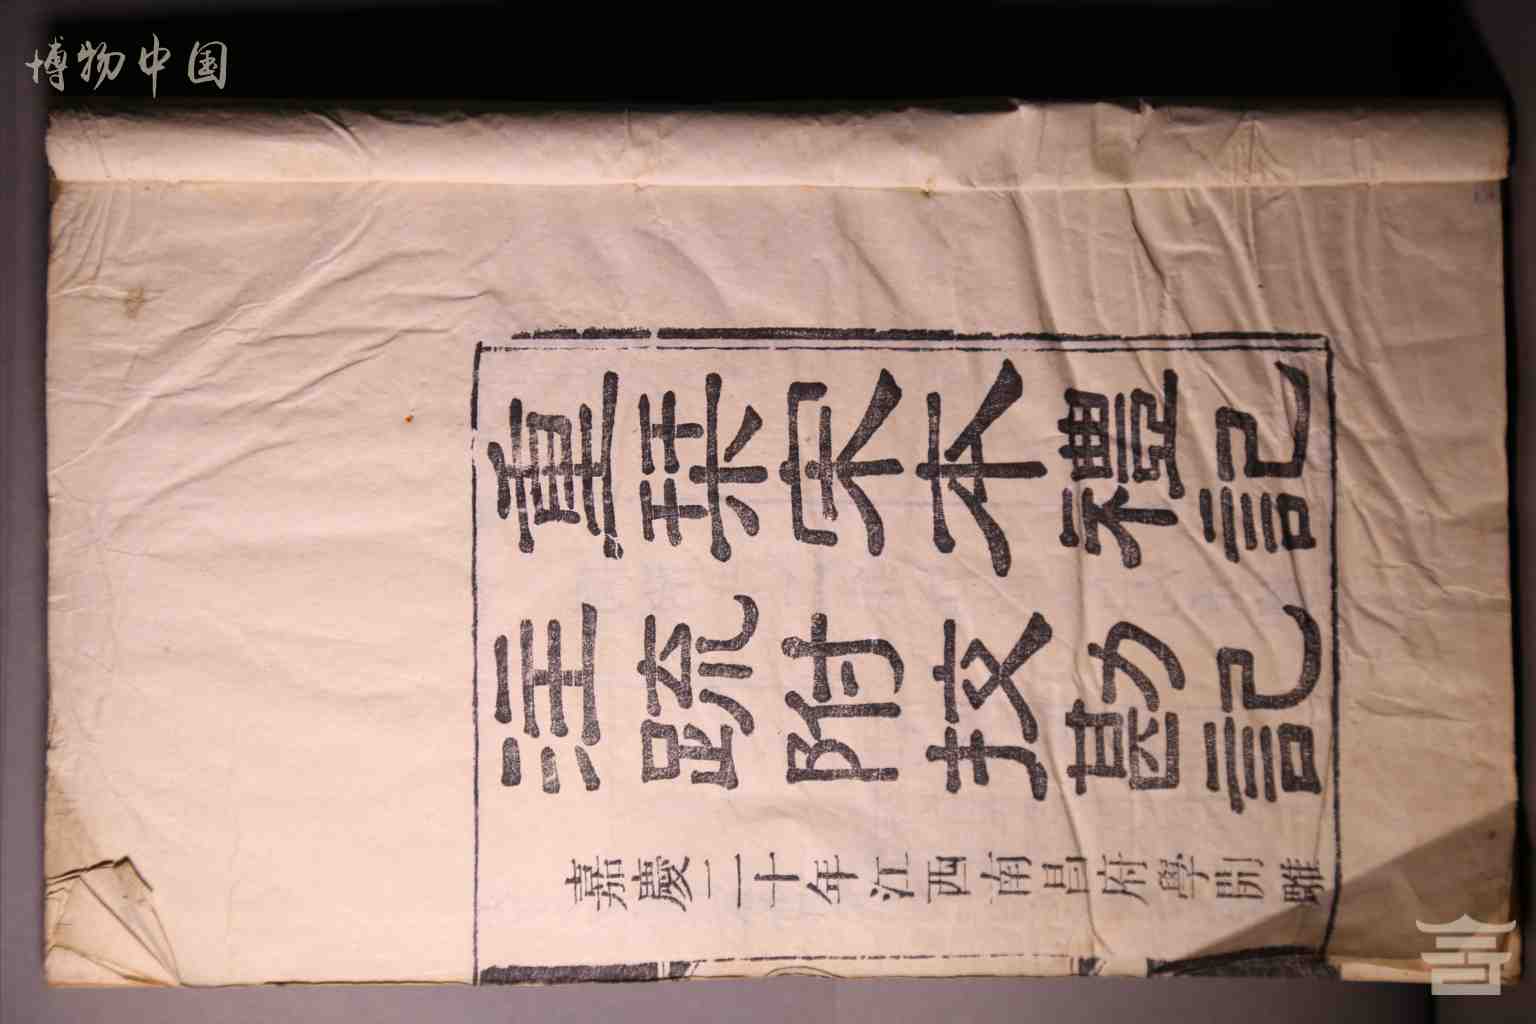 博物中国
重栞宋本禮記
注疏附挍勘記
嘉慶二十年江西南昌府學開雕